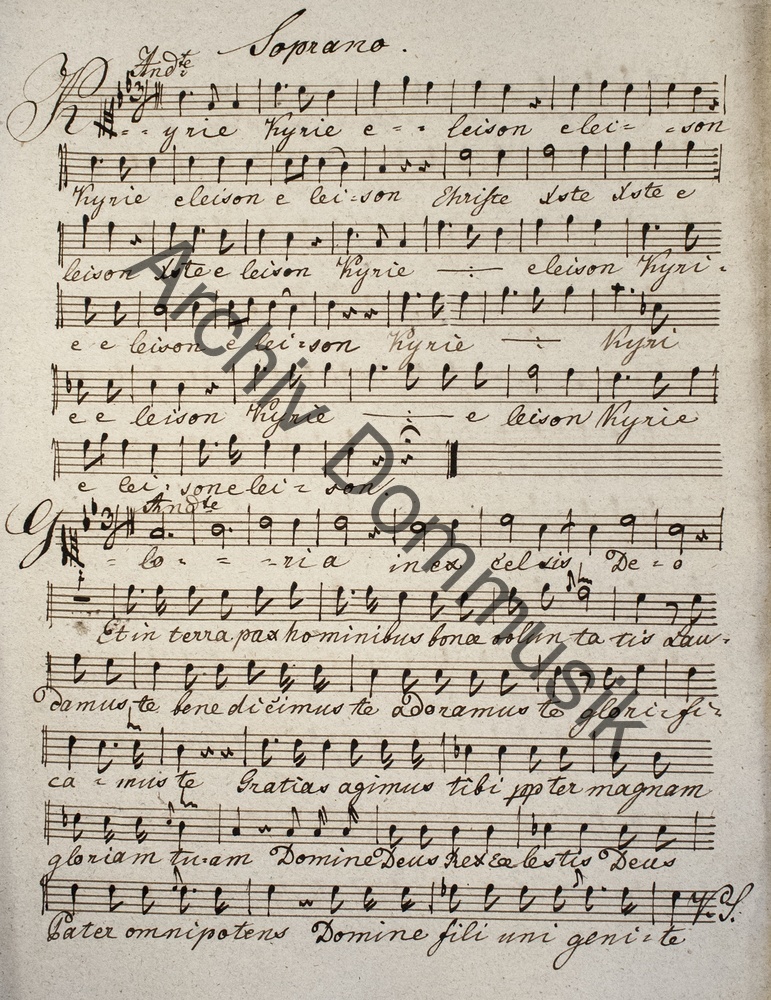 Soprano.
Andte
K - - yrie Kyrie e - - leison elei - - son
Kyrie eleison e lei - son Christe Xste Xste e
leison Xste e leison Kyrie eleison Kyri -
e e leison e lei - son Kyrie Kyri
e e leison Kyrie e leison Kyrie
e lei - son elei - son.
Andte
G - lo - - - ria in ex celsis De - o
Et in terra pax hominibus bonæ volun ta tis Lau -
damus te bene dicimus te adoramus te glori - fi -
ca - mus te Gratias agimus tibi ppter magnam
gloriam tu - am Domine Deus Rex cœlestis Deus
Pater omnipotens Domine fili uni geni - te
V. S.
Archiv Dommusik